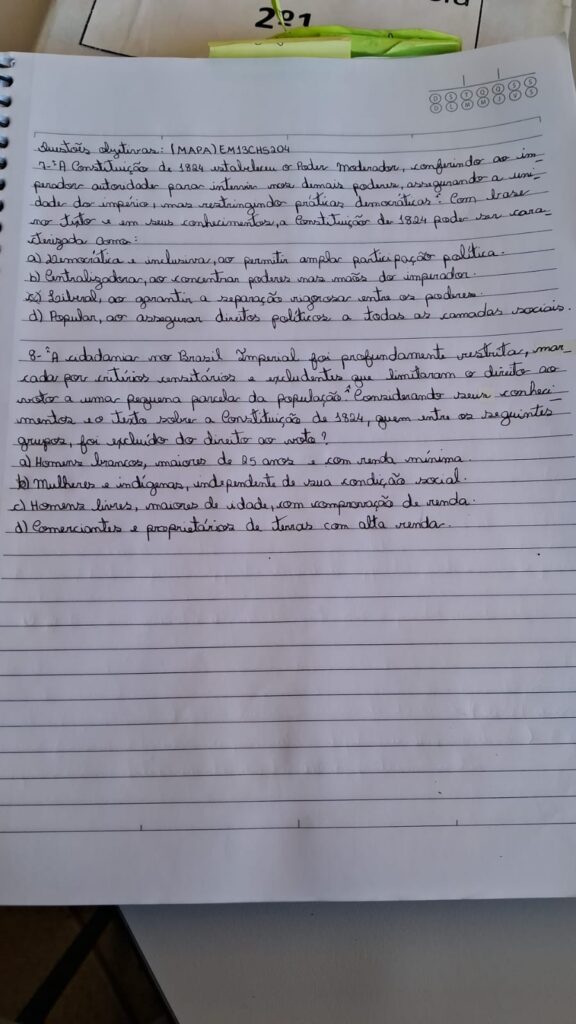 2º1
D S T Q Q S S
D L M M J V S
Questões objetivas: (MAPA) EM13CHS204
7- "A Constituição de 1824 estabeleceu o Poder Moderador, conferindo ao im-
perador autoridade para intervir nos demais poderes, assegurando a uni-
dade do império, mas restringindo práticas democráticas". Com base
no texto e em seus conhecimentos, a Constituição de 1824 pode ser cara-
cterizada como:
a) Democrática e inclusiva, ao permitir ampla participação política.
b) Centralizadora, ao concentrar poderes nas mãos do imperador.
c) Liberal, ao garantir a separação rigorosa entre os poderes.
d) Popular, ao assegurar direitos políticos a todas as camadas sociais.
8- "A cidadania no Brasil Imperial foi profundamente restrita, mar-
cada por critérios censitários e excludentes que limitaram o direito ao
voto a uma pequena parcela da população". Considerando seus conheci-
mentos e o texto sobre a Constituição de 1824, quem entre os seguintes
grupos, foi excluído do direito ao voto?
a) Homens brancos, maiores de 25 anos e com renda mínima.
b) Mulheres e indígenas, independente de sua condição social.
c) Homens livres, maiores de idade, com comprovação de renda.
d) Comerciantes e proprietários de terras com alta renda.